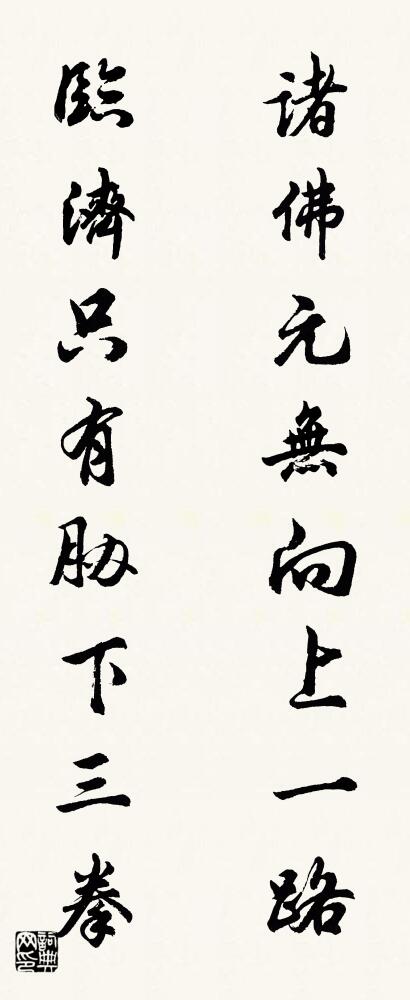 諸佛元無向上一路
臨濟只有胁下三拳
詞典網印